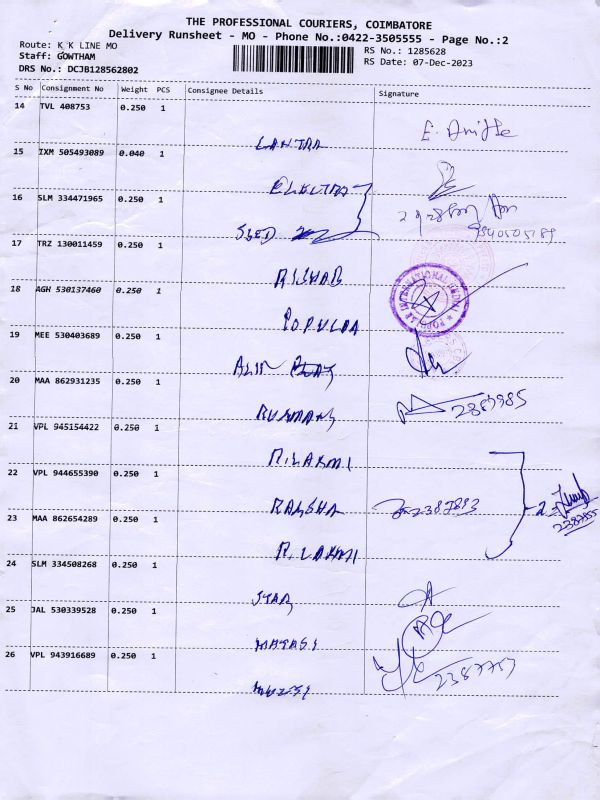 THE PROFESSIONAL COURIERS, COIMBATORE
Delivery Runsheet - MO - Phone No.:0422-3505555 - Page No.:2
Route: K K LINE MO
RS No.: 1285628
Staff: GOWTHAM
RS Date: 07-Dec-2023
DRS No.: DCJB128562802
S No Consignment No Weight PCS Consignee Details Signature
14 TVL 408753 0.250 1
LANTRA
15 IXM 505493089 0.040 1
ELEKTRA
16 SLM 334471965 0.250 1
SEED
9540505189
17 TRZ 130011459 0.250 1
RISHAB
18 AGH 530137460 0.250 1
POPULAR
19 MEE 530403689 0.250 1
20 MAA 862931235 0.250 1
2389985
21 VPL 945154422 0.250 1
R.LAXMI
22 VPL 944655390 0.250 1
RAKSHA 2387893
2
2387855
23 MAA 862654289 0.250 1
R.LAXMI
24 SLM 334508268 0.250 1
STAR
25 JAL 530339528 0.250 1
MATAJI
26 VPL 943916689 0.250 1
2387757